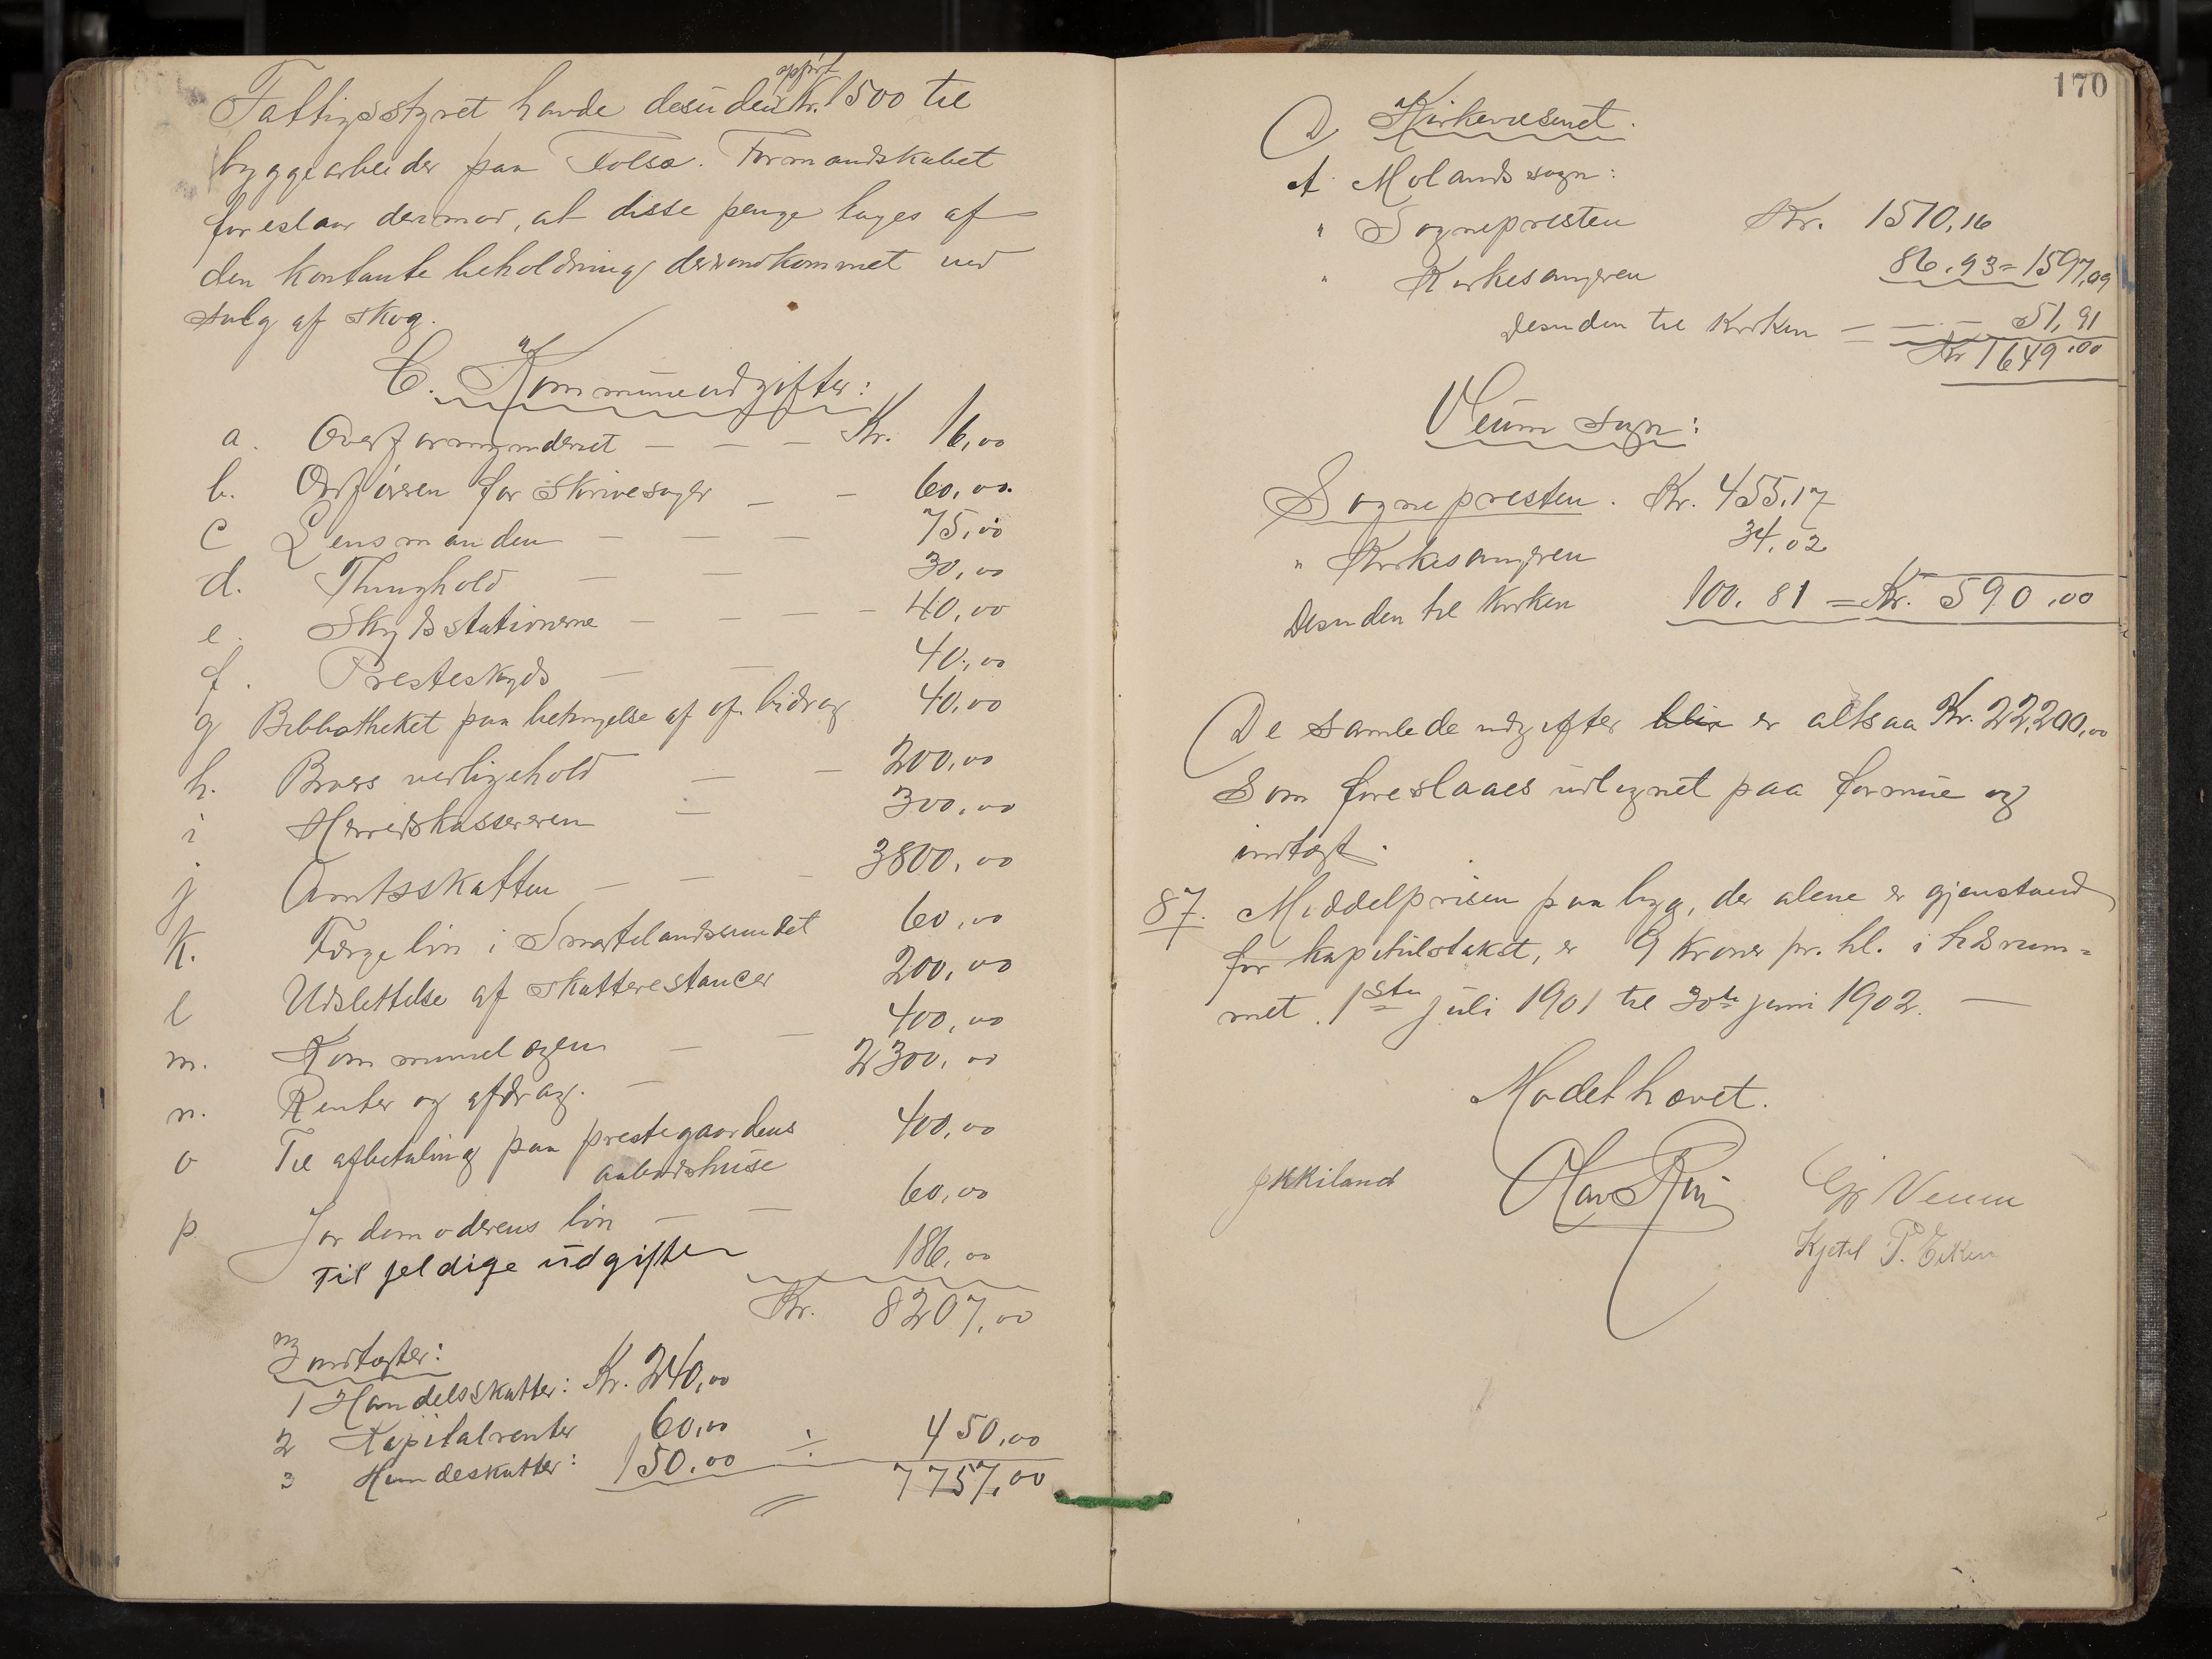 Fattigstyret havde desuden opført Kr. 1500 til
byggearbeider paa Tolsa. Formandskabet
foreslaar derimod, at disse penge tages af
den kontante beholdning derindkommet ved
salg af skog.
C. Kommuneudgifter:
a. Overformynderiet — — — Kr. 16,00
b. Ordføreren for skrivesager — — 60,00
c Lensmanden — — — 75,00
d. Thinghold — — 30,00
e. Skydsstationerne — — — 40,00
f. Presteskyds — — 40,00
g Bibliotheket paa betingelse af of. bidrag 40,00
h. Broers vedligehold — — 200,00
i Herredskassereren — 300,00
j Amtsskatten — — — 3800,00
k. Færgeløn i Smørtelandssundet 60,00
l Udslettelse af skatterestancer 200,00
m. Kommunelægen — — 400,00
n. Renter og afdrag. — 2300,00
o Til afbetaling paa prestegaardens
aabodshuse 400,00
p. Jordemoderens løn — — 60,00
Tilfeldige udgifter 186,00
Kr. 8207,00
Indtægter:
1 Handelsskatter: Kr. 240,00
2 Kapitalrenter 60,00
3 Hundeskatter: 150,00 ÷ 450,00
7757,00
170
D Kirkevæsenet.
A. Molands sogn:
" Sognepresten Kr. 1510,16
" Kirkesangeren 86,93 = 1597,09
Desuden til Kirken — — — 51,91
Kr 1649,00
Veum sogn:
Sognepresten. Kr. 455,17
" Kirkesangeren 34,02
Desuden til Kirken 100,81 = Kr. 590,00
De samlede udgifter bliv er altsaa Kr. 22,200,00
som foreslaaes udlignet paa formue og
indtægt.
87. Middelprisen paa byg, der alene er gjenstand
for kapitulstakst, er 9 Kroner pr. hl. i tidsrum=
met 1ste juli 1901 til 30te juni 1902. —
Mødet hævet.
JKKiland Olav Rui Gjr Veum
Kjetil P. Eiken